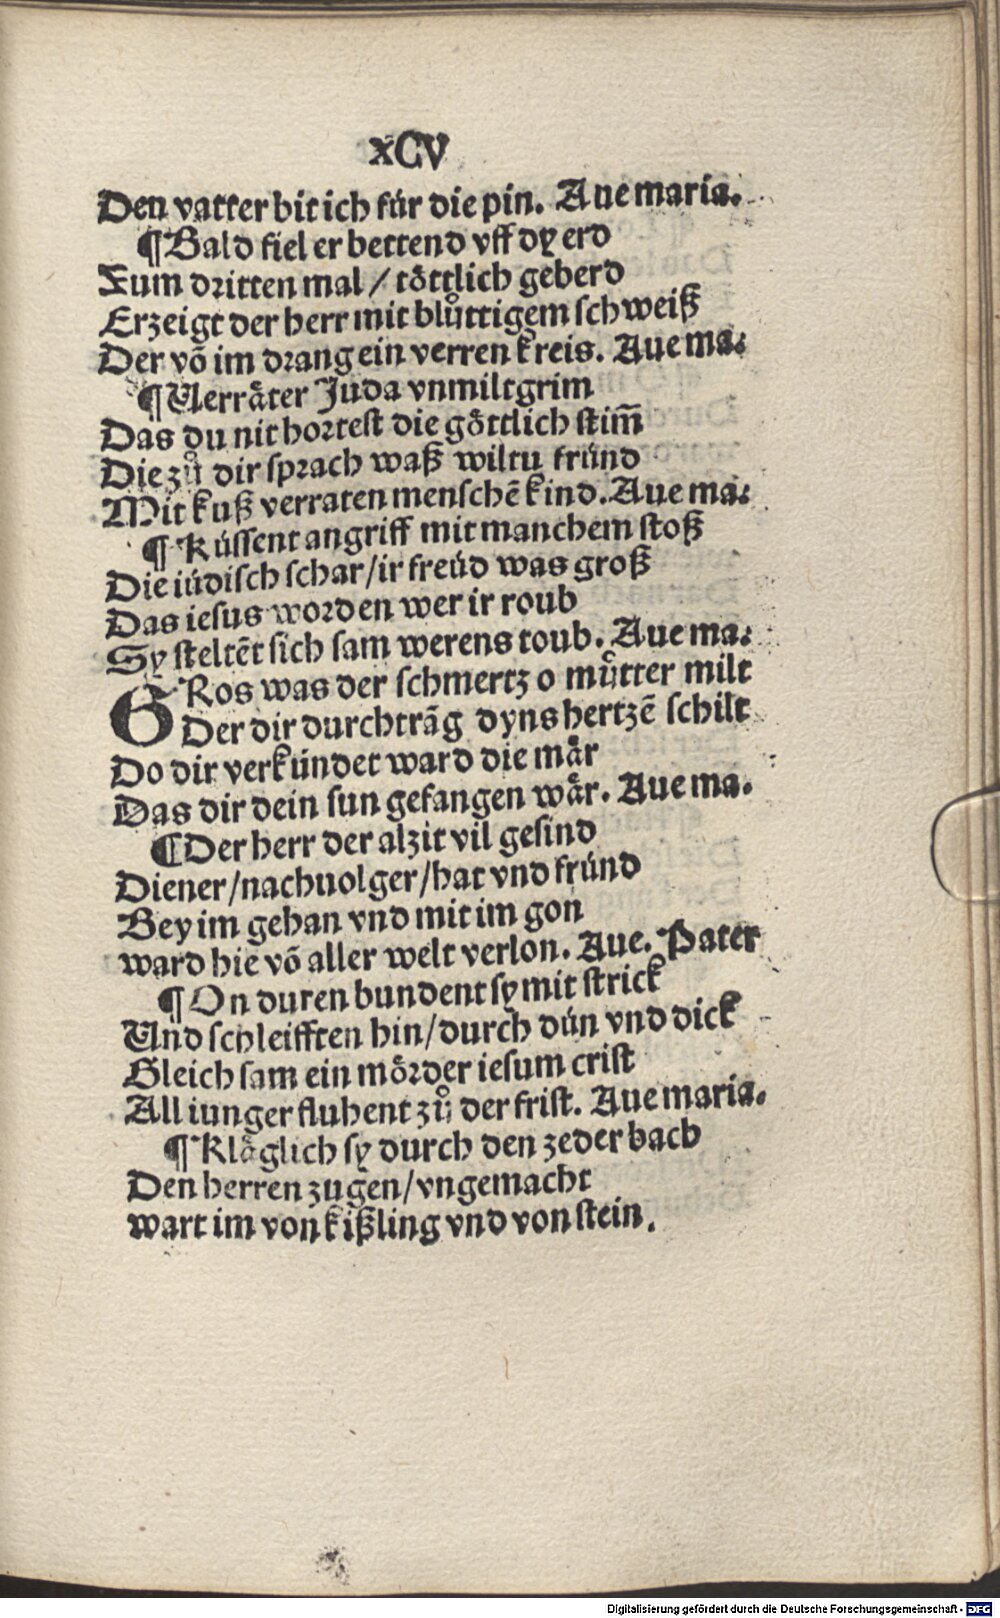 xCV
Den vatter bit ich für die pin. Aue maria.
¶ Bald fiel er bettend vff dy erd
Zum dritten mal / töttlich geberd
Erzeigt der herr mit blůttigem schweiß
Der võ im drang ein verren kreis. Aue ma.
¶ Verräter Juda vnmiltgrim
Das du nit hortest die göttlich stim̃
Die zů dir sprach waß wiltu fründ
Mit kuß verraten menschẽ kind. Aue ma.
¶ Küssent angriff mit manchem stoß
Die iüdisch schar / ir freüd was groß
Das iesus worden wer ir roub
Sy steltẽt sich sam werens toub. Aue ma.
GRos was der schmertz o můtter milt
Der dir durchträg dyns hertzẽ schilt
Do dir verkündet ward die mär
Das dir dein sun gefangen wär. Aue ma.
¶ Der herr der alzit vil gesind
Diener / nachuolger / hat vnd fründ
Bey im gehan vnd mit im gon
ward hie võ aller welt verlon. Aue. Pater
¶ On duren bundent sy mit strick
Und schleifften hin / durch dün vnd dick
Gleich sam ein mörder iesum crist
All iunger fluhent zů der frist. Aue maria.
¶ Kläglich sy durch den zeder bach
Den herren zugen / vngemacht
wart im von kißling vnd von stein.
Digitalisierung gefördert durch die Deutsche Forschungsgemeinschaft - DFG